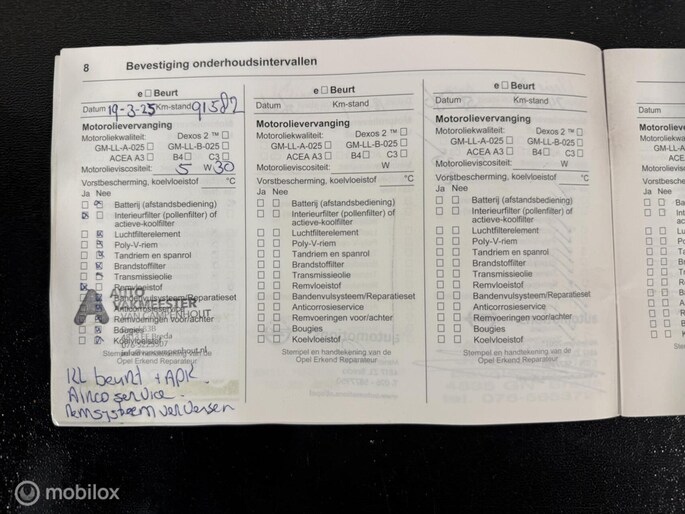 8 Bevestiging onderhoudsintervallen
e Beurt
Datum 19-3-25 Km-stand 91582
Motorolievervanging
Motoroliekwaliteit: Dexos 2 ™
GM-LL-A-025 GM-LL-B-025
ACEA A3 B4 C3
Motorolieviscositeit: 5 W 30
Vorstbescherming, koelvloeistof °C
Ja Nee
Batterij (afstandsbediening)
Interieurfilter (pollenfilter) of
actieve-koolfilter
Luchtfilterelement
Poly-V-riem
Tandriem en spanrol
Brandstoffilter
Transmissieolie
Remvloeistof
Bandenvulsysteem/Reparatieset
Anticorrosieservice
Remvoeringen voor/achter
Bougies
Koelvloeistof
AUTO
VAKMEESTER
VAN CAMPENHOUT
Stempel en handtekening van de
Opel Erkend Reparateur
Kl beurt + APK.
Airco service.
Remsysteem verversen
e Beurt
Datum Km-stand
Motorolievervanging
Motoroliekwaliteit: Dexos 2 ™
GM-LL-A-025 GM-LL-B-025
ACEA A3 B4 C3
Motorolieviscositeit: W
Vorstbescherming, koelvloeistof °C
Ja Nee
Batterij (afstandsbediening)
Interieurfilter (pollenfilter) of
actieve-koolfilter
Luchtfilterelement
Poly-V-riem
Tandriem en spanrol
Brandstoffilter
Transmissieolie
Remvloeistof
Bandenvulsysteem/Reparatieset
Anticorrosieservice
Remvoeringen voor/achter
Bougies
Koelvloeistof
Stempel en handtekening van de
Opel Erkend Reparateur
e Beurt
Datum Km-stand
Motorolievervanging
Motoroliekwaliteit: Dexos 2 ™
GM-LL-A-025 GM-LL-B-025
ACEA A3 B4 C3
Motorolieviscositeit: W
Vorstbescherming, koelvloeistof °C
Ja Nee
Batterij (afstandsbediening)
Interieurfilter (pollenfilter) of
actieve-koolfilter
Luchtfilterelement
Poly-V-riem
Tandriem en spanrol
Brandstoffilter
Transmissieolie
Remvloeistof
Bandenvulsysteem/Reparatieset
Anticorrosieservice
Remvoeringen voor/achter
Bougies
Koelvloeistof
Stempel en handtekening van de
Opel Erkend Reparateur
Datum
Ja Nee
mobilox